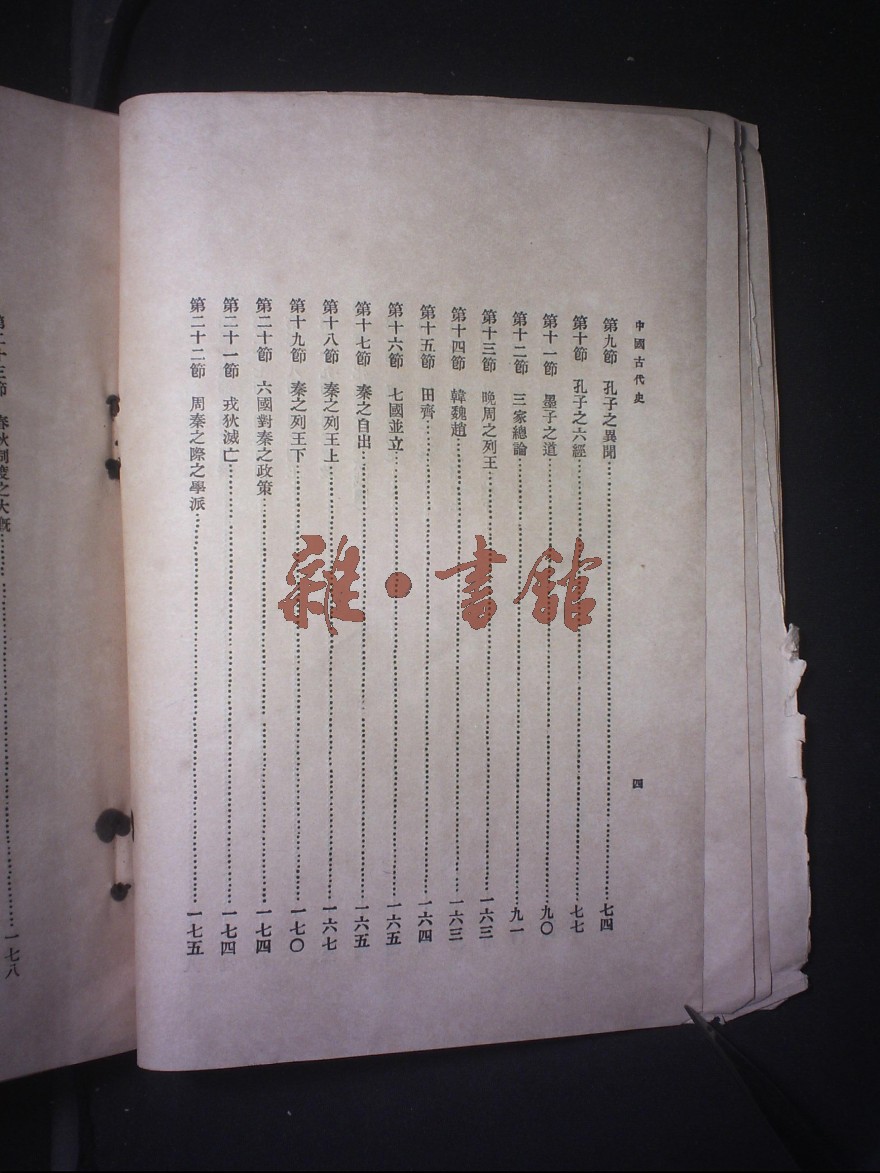 中國古代史
四
第九節　孔子之異聞……七四
第十節　孔子之六經……七七
第十一節　墨子之道……九〇
第十二節　三家總論……九一
第十三節　晚周之列王……一六三
第十四節　韓魏趙……一六三
第十五節　田齊……一六四
第十六節　七國並立……一六五
第十七節　秦之自出……一六五
第十八節　秦之列王上……一六七
第十九節　秦之列王下……一七〇
第二十節　六國對秦之政策……一七四
第二十一節　戎狄滅亡……一七四
第二十二節　周秦之際之學派……一七五
第二十三節　春秋制度之大概……一七八
雜·書館